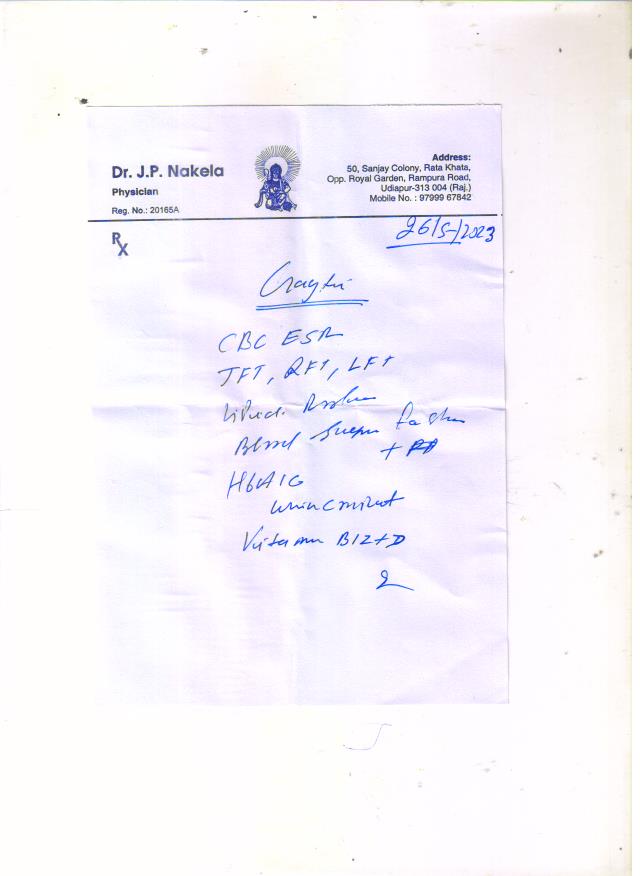 Dr. J.P. Nakela
Physician
Reg. No.: 20165A
Address:
50, Sanjay Colony, Rata Khata,
Opp. Royal Garden, Rampura Road,
Udiapur-313 004 (Raj.)
Mobile No. : 97999 67842
Rx
26/5/2023
CBC ESR
TFT, RFT, LFT
Lipid
Blood Sugar
+ PP
HbA1C
Vitamin B12+D